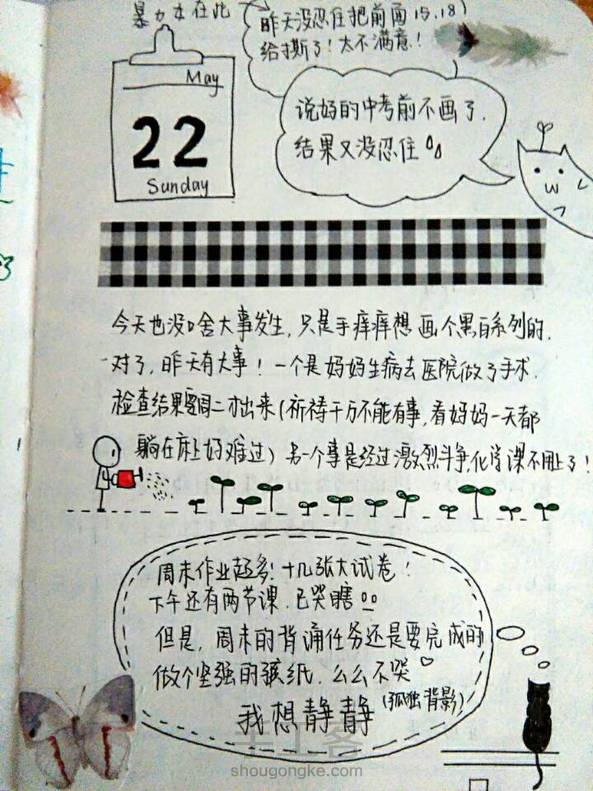 暴力女在此
昨天没忍住把前面15.18)
给撕了!太不满意!
May
22
Sunday
说好的中考前不画了.
结果又没忍住
今天也没啥大事发生,只是手痒痒想画个黑白系列的.
对了,昨天有大事!一个是妈妈生病去医院做了手术.
检查结果要周二才出来(祈祷千万不能有事,看妈妈一天都
躺在床上好难过)另一个事是经过激烈斗争,化学课不用上了!
周末作业超多!十几张大试卷!
下午还有两节课.已哭瞎
但是,周末的背诵任务还是要完成的
做个坚强的孩纸.么么不哭
我想静静(孤独背影)
手工客
shougongke.com